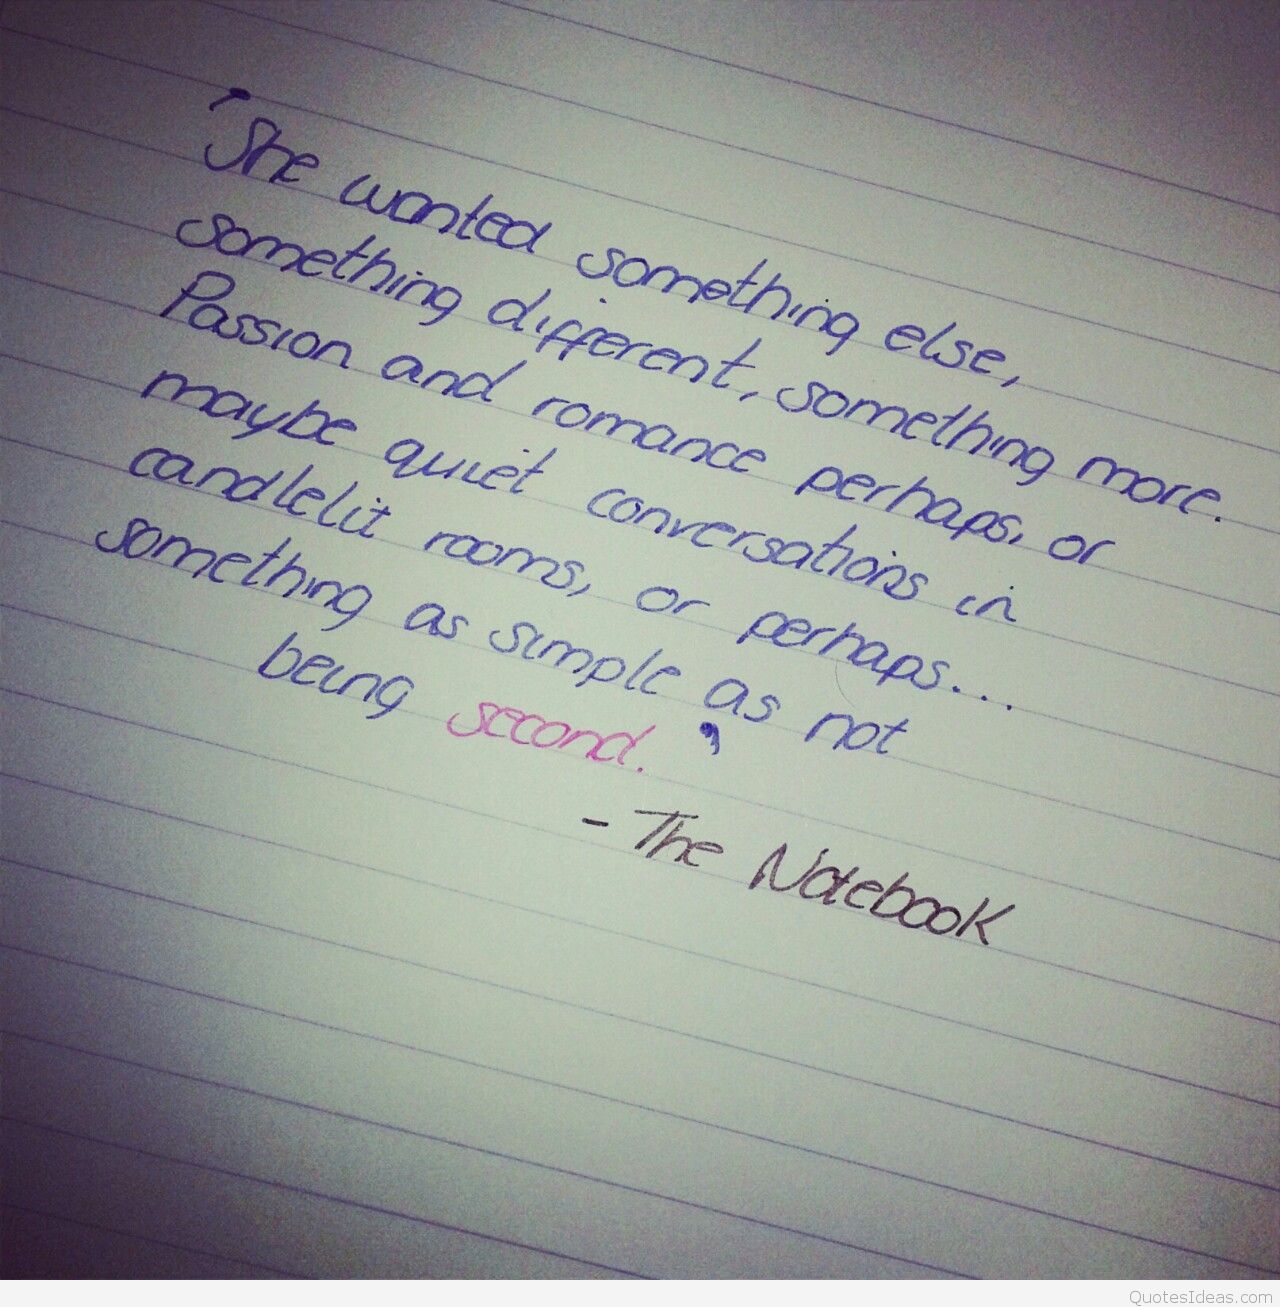 'She wanted something else,
something different, something more.
Passion and romance perhaps, or
maybe quiet conversations in
candlelit rooms, or perhaps...
something as simple as not
being second.'
- The Notebook
QuotesIdeas.com